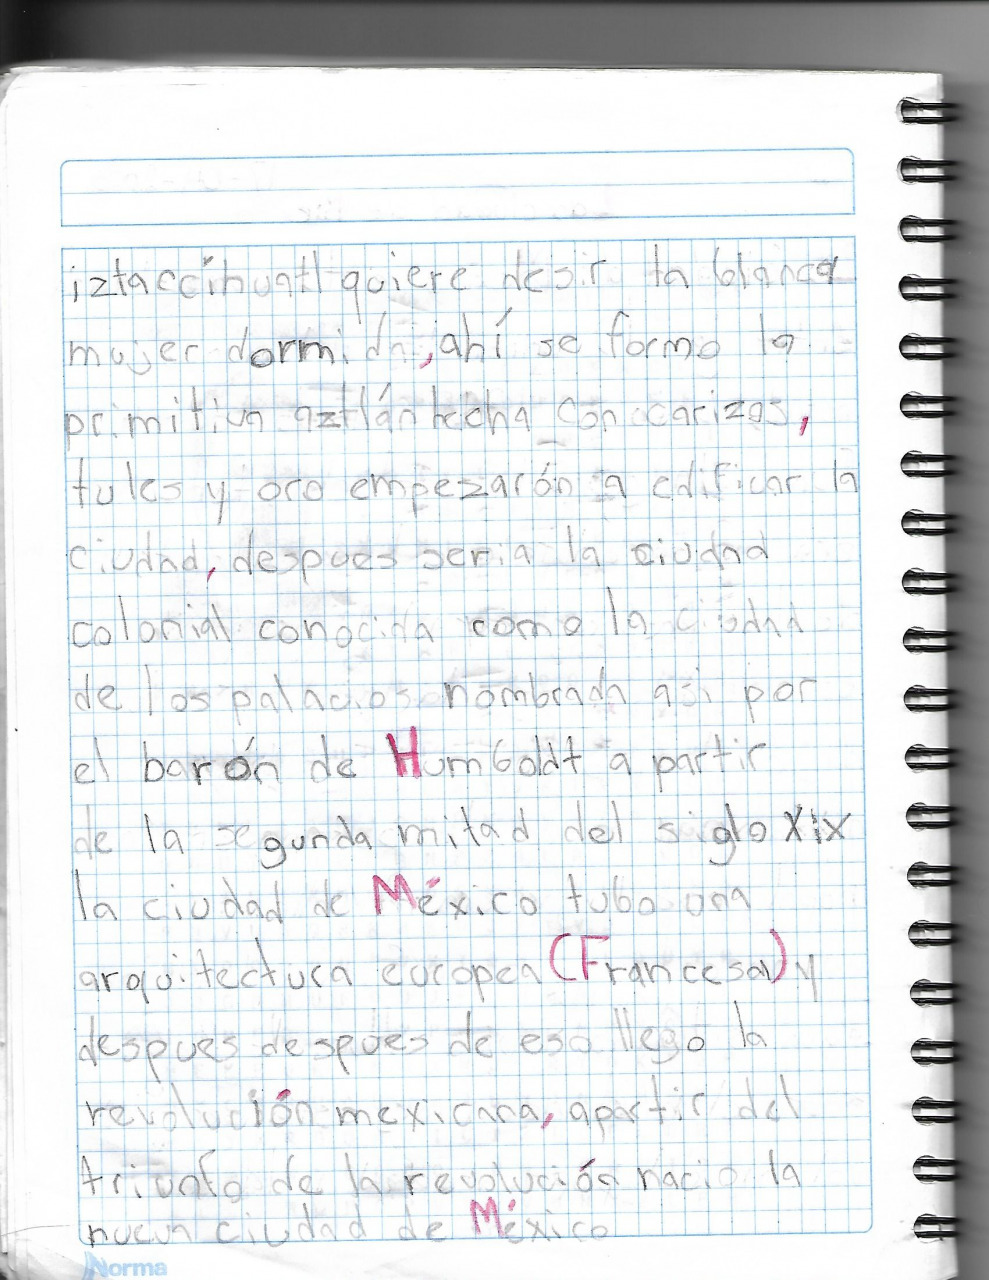 iztaccíhuatl quiere desir la blanca
mujer dormida, ahí se formo la
primitiva aztlán hecha con carizos,
tules y oro empezarón a edificar la
ciudad, despues seria la ciudad
colonial conocida como la ciudad
de los palacios nombrada asi por
el barón de Humboldt a partir
de la segunda mitad del siglo Xix
la ciudad de México tubo una
arquitectura europea (Francesa) y
despues despues de eso llego la
revolución mexicana, apartir del
triunfo de la revolución nacio la
nueva ciudad de México
Norma